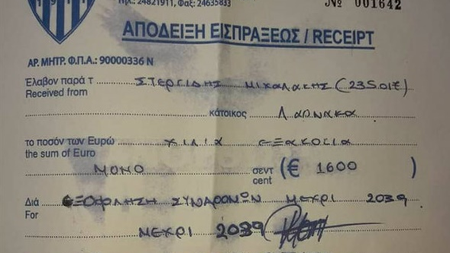 Τηλ.: 24821911, Φαξ: 24635833
№ 001642
ΑΠΟΔΕΙΞΗ ΕΙΣΠΡΑΞΕΩΣ / RECEIPT
ΑΡ. ΜΗΤΡ. Φ.Π.Α.: 90000336 N
Έλαβον παρά τ ΣΤΕΡΓΙΔΗΣ ΜΙΧΑΛΑΚΗΣ (
Received from
κάτοικος ΛΑΡΝΑΚΑ
το ποσόν των Ευρώ ΧΙΛΙΑ ΕΞΑΚΟΣΙΑ
the sum of Euro
ΜΟΝΟ σεντ (€ 1600 )
cent
Διά ΕΞΟΦΛΗΣΗ ΣΥΝΔΡΟΜΩΝ ΜΕΧΡΙ 2039
For
ΜΕΧΡΙ 2039